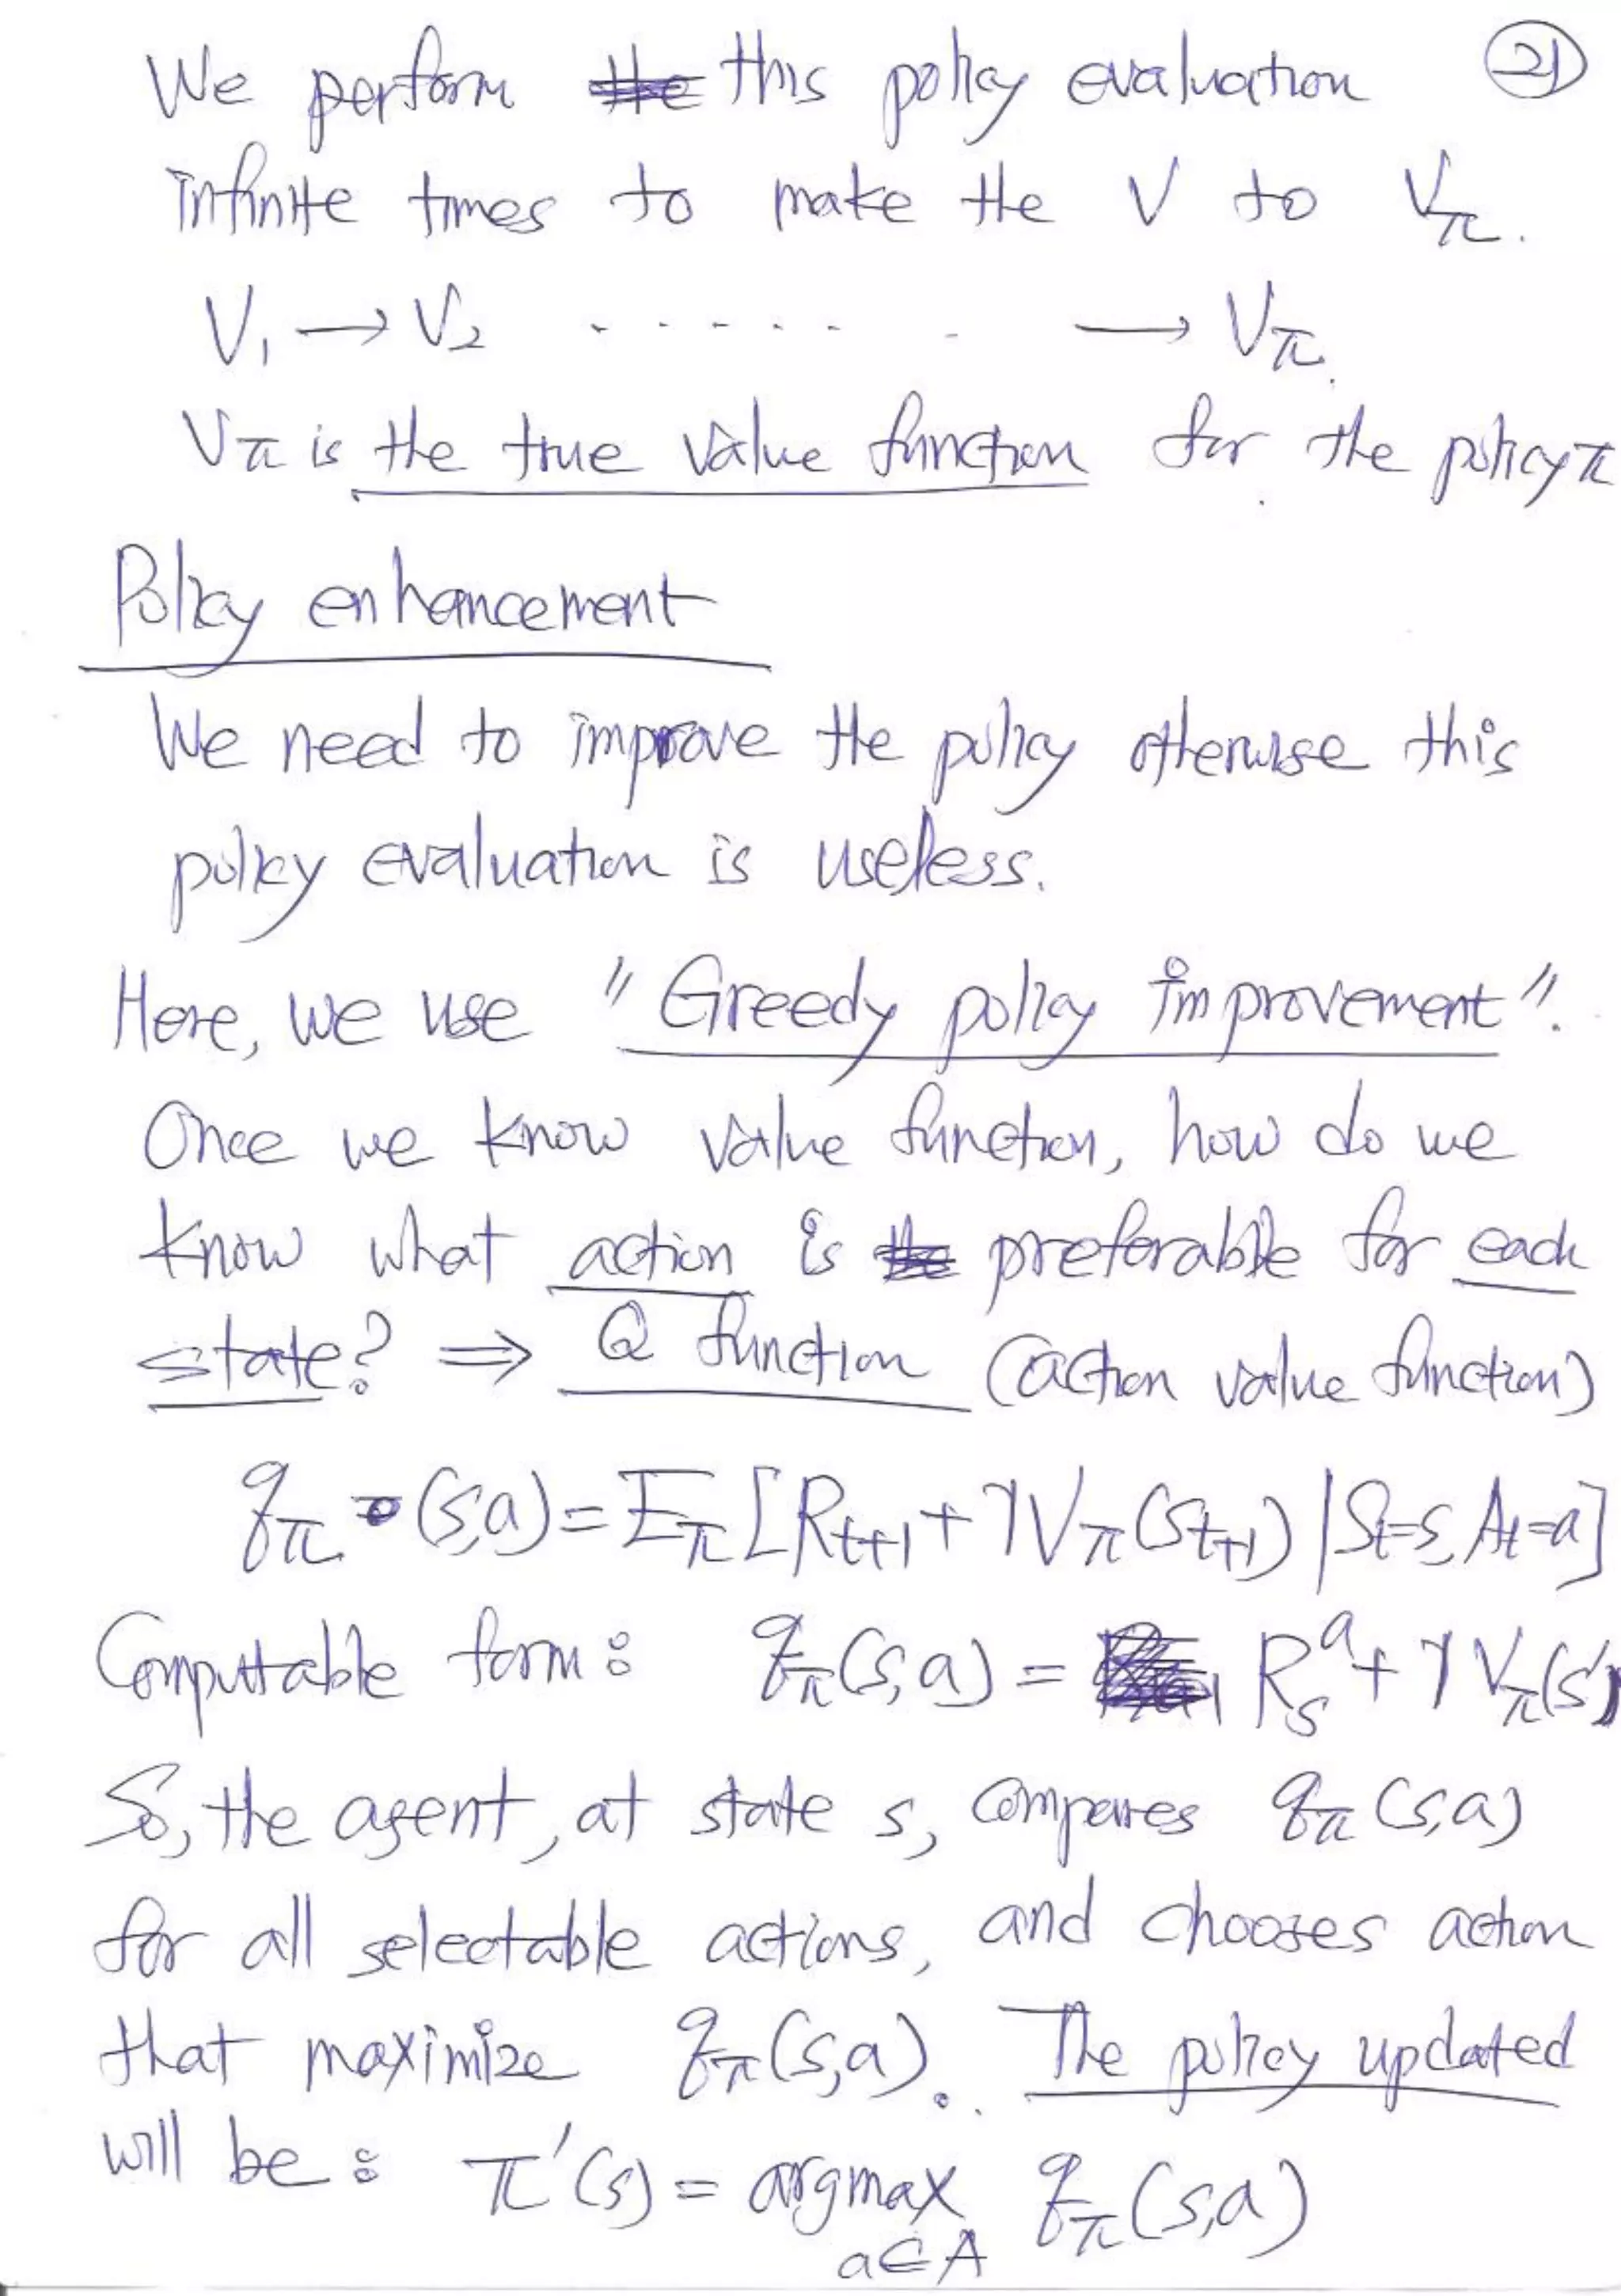 We perform this policy evaluation 21
infinite times to make the V to Vπ.
V₁ → V₂ . . . . . . → Vπ.
Vπ is the true value function for the policy π
Policy enhancement
We need to improve the policy otherwise this
policy evaluation is useless.
Here, we use "Greedy policy improvement".
Once we know value function, how do we
know what action is preferable for each
state? ⇒ Q function (action value function)
qπ (s,a) = Eπ [Rt+1 + γVπ(St+1) | St=s, At=a]
Computable form: qπ(s,a) = Rsᵃ + γVπ(s')
So, the agent, at state s, compares qπ(s,a)
for all selectable actions, and chooses action
that maximize qπ(s,a). The policy updated
will be: π'(s) = argmax qπ(s,a)
a∈A